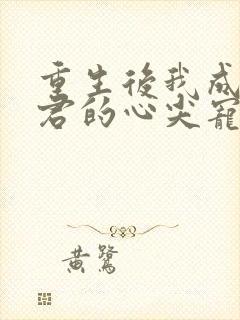 重生後我成
君的心尖寵
黃鷺